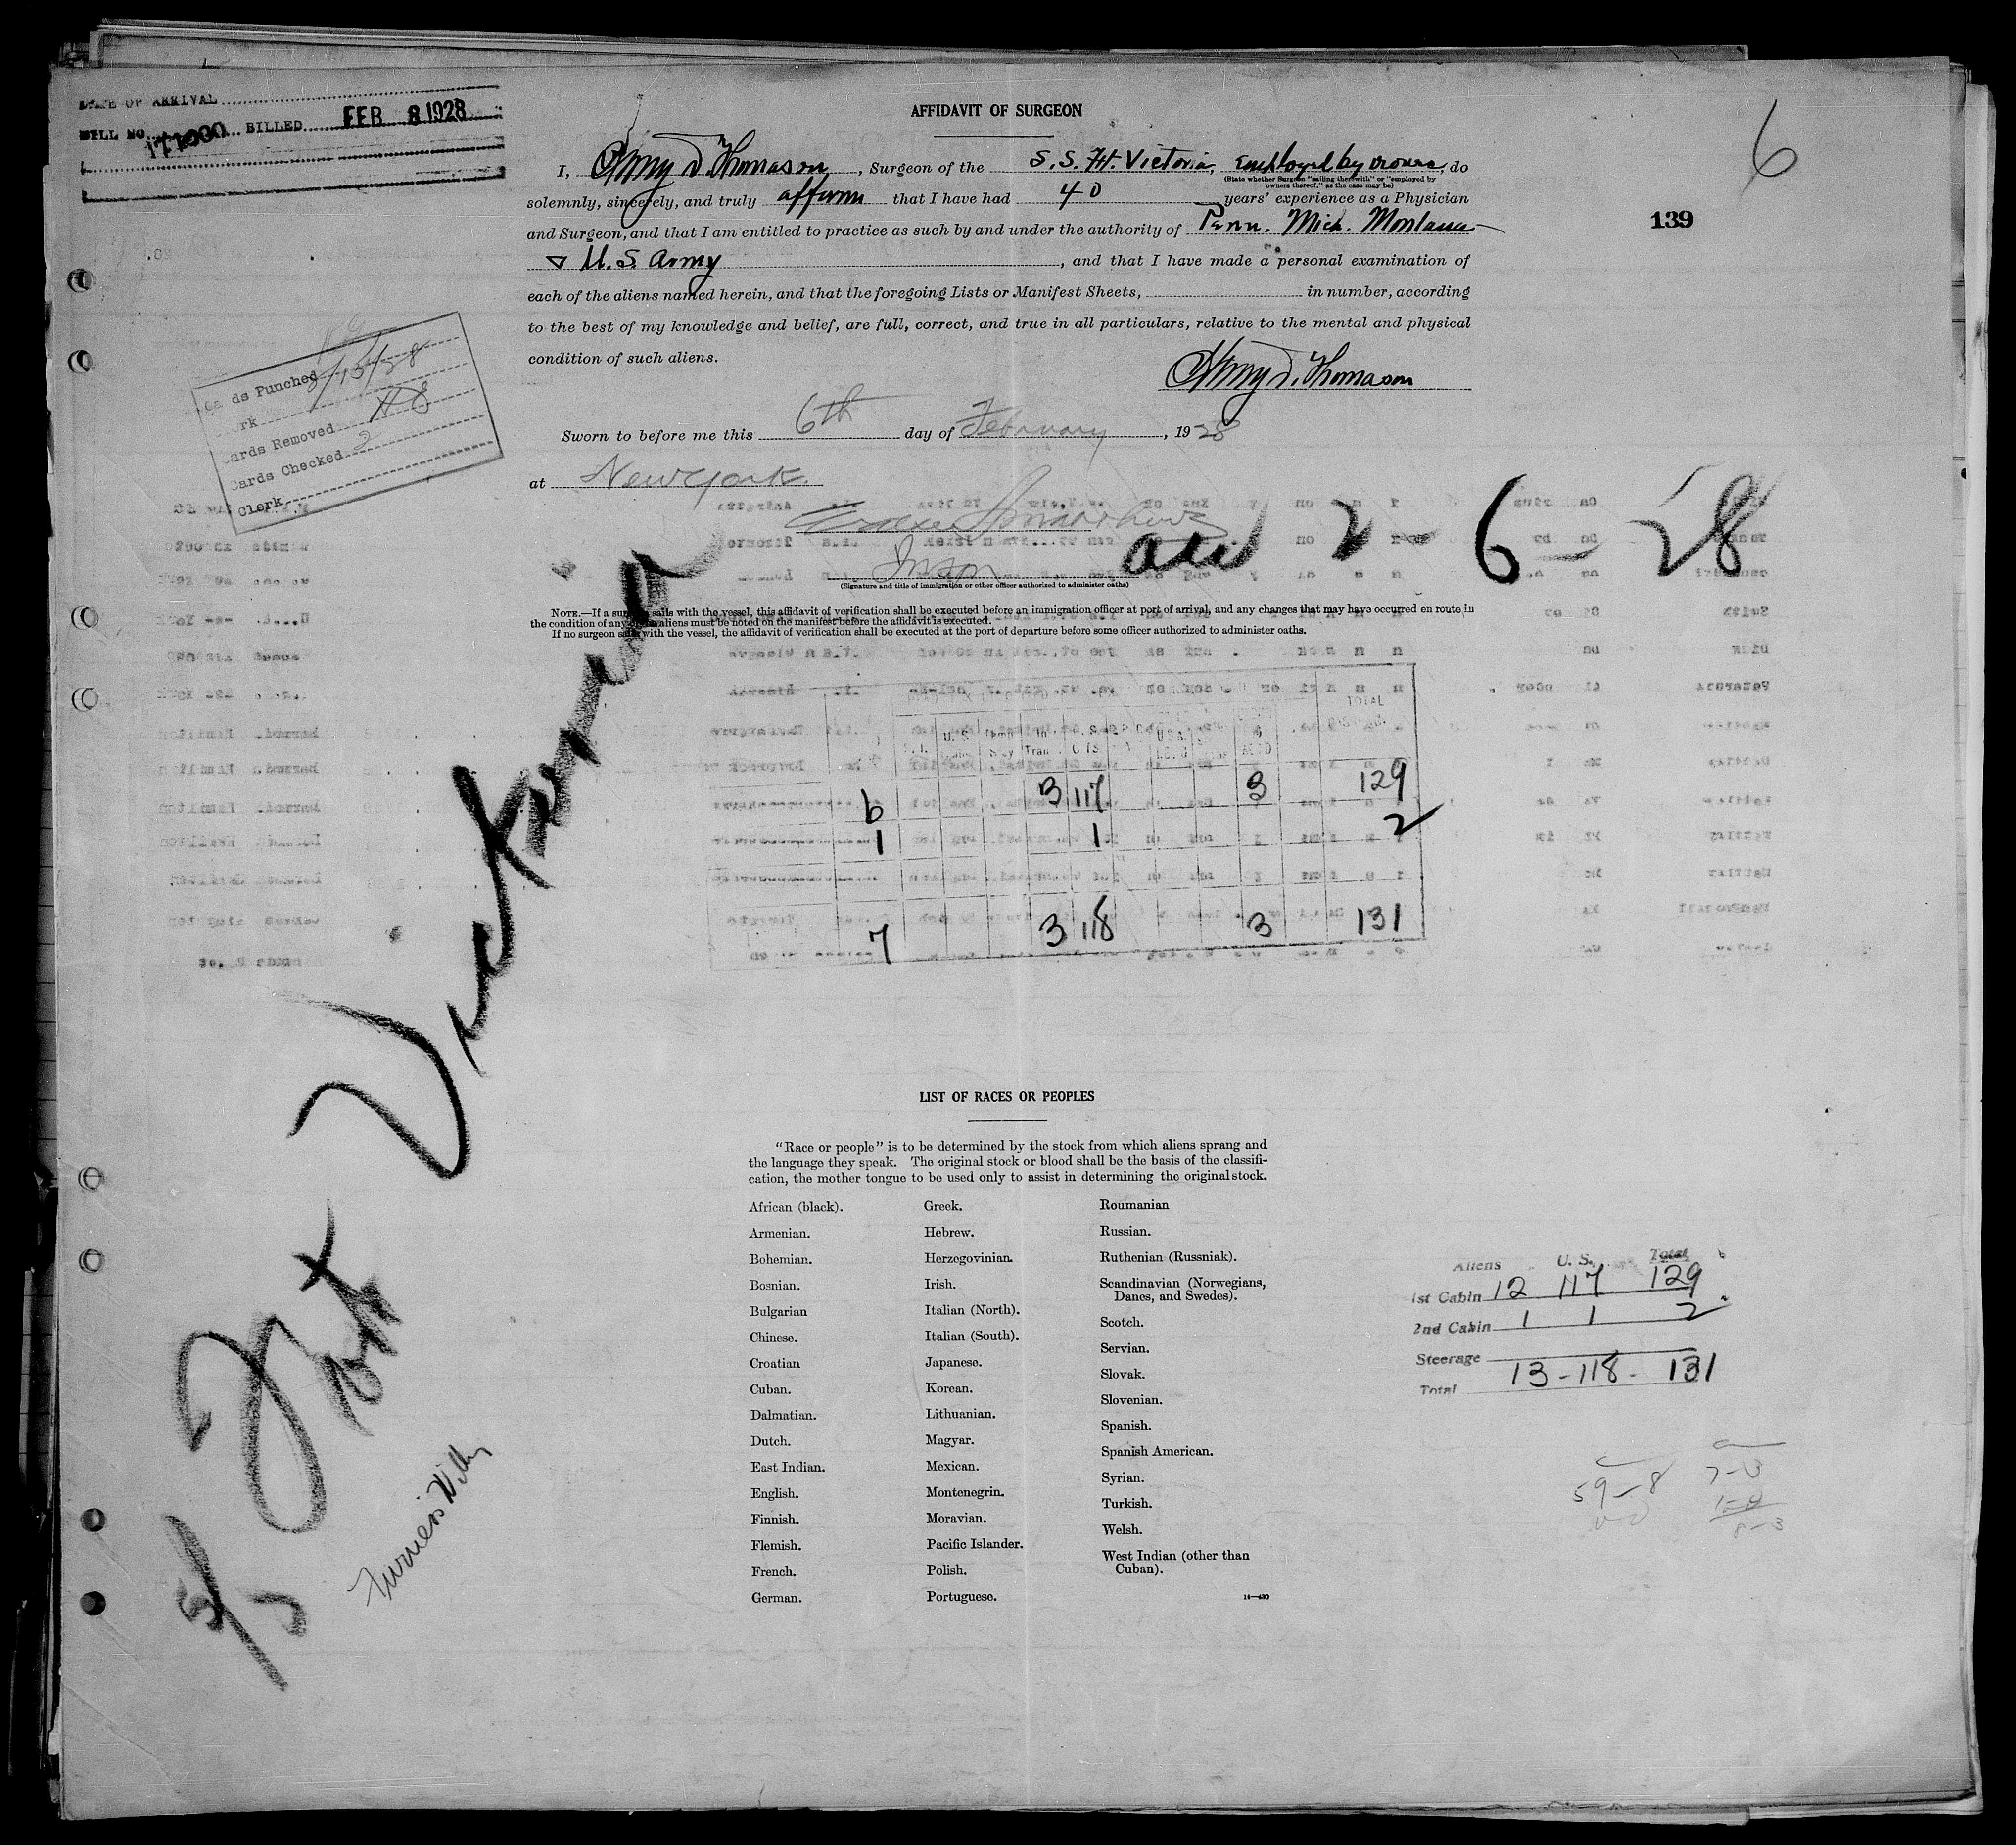 DATE OF ARRIVAL
BILL NO. 171000 BILLED FEB 8 1928
AFFIDAVIT OF SURGEON
6
I, Henry D. Thomason, Surgeon of the S.S. Ft. Victoria, Employed by owners, do
(State whether Surgeon "sailing therewith" or "employed by
owners thereof," as the case may be)
solemnly, sincerely, and truly affirm that I have had 40 years' experience as a Physician
139
and Surgeon, and that I am entitled to practice as such by and under the authority of Penn. Mich. Montana
& U.S. Army, and that I have made a personal examination of
each of the aliens named herein, and that the foregoing Lists or Manifest Sheets, in number, according
to the best of my knowledge and belief, are full, correct, and true in all particulars, relative to the mental and physical
condition of such aliens.
Henry D. Thomason
Cards Punched
Clerk
Cards Removed
Cards Checked 2
Clerk
Sworn to before me this 6th day of February, 1928
at New York
Insp
(Signature and title of immigration or other officer authorized to administer oaths)
2-6-28
NOTE.—If a surgeon sails with the vessel, this affidavit of verification shall be executed before an immigration officer at port of arrival, and any changes that may have occurred en route in
the condition of any aliens must be noted on the manifest before the affidavit is executed.
If no surgeon sails with the vessel, the affidavit of verification shall be executed at the port of departure before some officer authorized to administer oaths.
TOTAL
6 3 117 3 129
1 1 2
7 3 118 3 131
S/S Ft Victoria
Furness Withy
LIST OF RACES OR PEOPLES
"Race or people" is to be determined by the stock from which aliens sprang and
the language they speak. The original stock or blood shall be the basis of the classifi-
cation, the mother tongue to be used only to assist in determining the original stock.
African (black).
Armenian.
Bohemian.
Bosnian.
Bulgarian
Chinese.
Croatian
Cuban.
Dalmatian.
Dutch.
East Indian.
English.
Finnish.
Flemish.
French.
German.
Greek.
Hebrew.
Herzegovinian.
Irish.
Italian (North).
Italian (South).
Japanese.
Korean.
Lithuanian.
Magyar.
Mexican.
Montenegrin.
Moravian.
Pacific Islander.
Polish.
Portuguese.
Roumanian
Russian.
Ruthenian (Russniak).
Scandinavian (Norwegians,
Danes, and Swedes).
Scotch.
Servian.
Slovak.
Slovenian.
Spanish.
Spanish American.
Syrian.
Turkish.
Welsh.
West Indian (other than
Cuban).
14—430
Aliens U. S. Total
1st Cabin 12 117 129
2nd Cabin 1 1 2
Steerage
Total 13-118-131
59-8